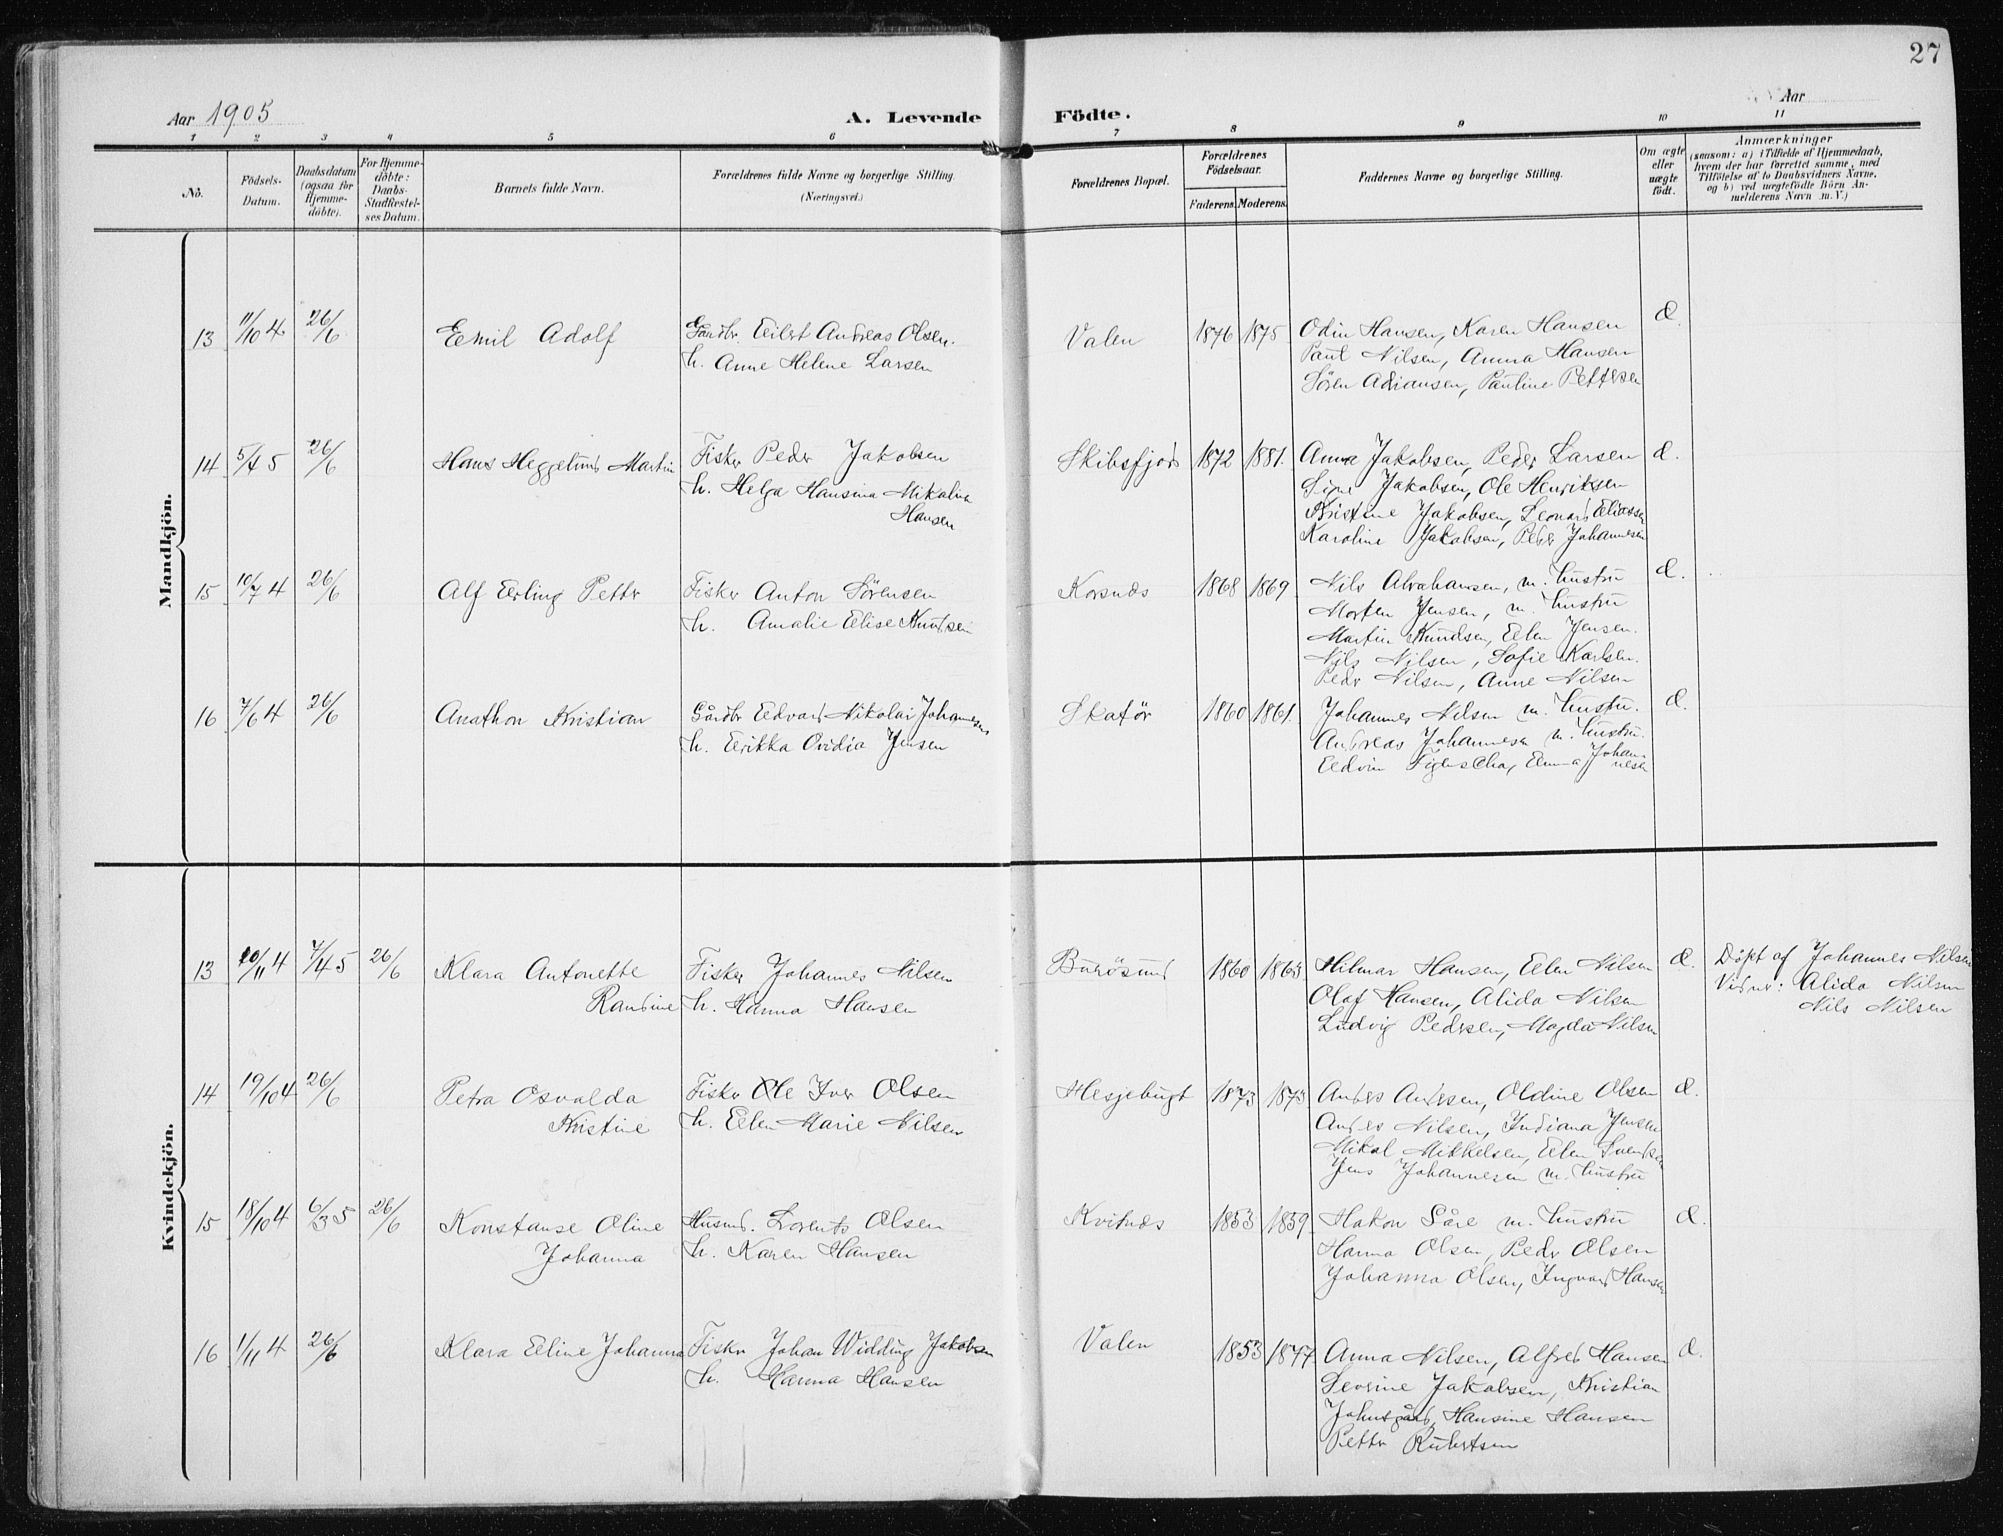 27
Aar 1905
A. Levende Födte.
Aar
1 2 3 4 5 6 7 8 9 10 11
No.
Födsels-Datum.
Daabsdatum (ogsaa for Hjemme-döbte).
For Hjemme-döbte: Daabs-Stadfæstel-ses Datum.
Barnets fulde Navn.
Forældrenes fulde Navne og borgerlige Stilling.
(Næringsvei.)
Forældrenes Bopæl.
Forældrenes Födselsaar.
Faderens. Moderens.
Faddernes Navne og borgerlige Stilling.
Om ægte eller uægte født.
Anmærkninger
(saasom: a) i Tilfælde af Hjemmedaab, hvem der har forrettet samme, med Tilföielse af to Daabsvidners Navne, og b) ved uægtefödte Börn An-melderens Navn m. V.)
Mandkjön.
13 11/10 4 26/6 Emil Adolf Gaardbr. Eilert Andreas Olsen. Valen 1876 1875 Odin Hansen, Karen Hansen Æ.
h. Anne Helene Larsen Paul Nilsen, Anna Hansen
Sören Adriansen, Pauline Pettersen
14 5/4 5 26/6 Hans Heggelund Martin Fisker Peder Jakobsen Skibsfjord 1872 1881. Anna Jakobsen, Peder Larsen Æ.
h. Helga Hansina Mikalina Signe Jakobsen, Ole Henriksen
Hansen Kristine Jakobsen, Leonard Eliassen
Karoline Jakobsen, Peder Johannesen
15 10/7 4 26/6 Alf Erling Petter Fisker Anton Sörensen Korsnes 1868 1869 Nils Abrahamsen, m. hustru Æ.
h. Amalie Elise Knudsen Morten Jensen, m. hustru
Martin Knudsen, Elen Jensen.
Nils Nilsen, Sofie Karlsen.
Peder Nilsen, Anne Nilsen
16 7/6 4 26/6 Anathon Kristian Gårdbr Edvard Nikolai Johannesen Skatør 1860 1861. Johannes Nilsen m. hustru. Æ.
h. Erikka Ovidia Jensen Andreas Johannesen m. hustru.
Edvin Figenschau, Emma Johan-
nesen
Kvindekjön.
13 20/11 4 7/4 5 26/6 Klara Antonette Fisker Johannes Nilsen Burösund 1860 1863 Hilmar Hansen, Elen Nilsen Æ. Døpt af Johannes Nilsen
Randine h. Hanna Hansen Olaf Hansen, Alida Nilsen Vidner: Alida Nilsen
Ludvig Pedersen, Magda Nilsen Nils Nilsen
14 19/10 4 26/6 Petra Osvalda Fisker Ole Iver Olsen Hesjebugt 1873 1873 Anders Andersen, Oldine Olsen Æ.
Kristine h. Elen Marie Nilsen Anders Nilsen, Indiana Jensen
Mikal Mikkelsen, Elen Svendsen
Jens Johannesen m. hustru
15 18/10 4 6/3 5 26/6 Konstanse Oline Husmd. Lorents Olsen Kvitnes 1853 1859 Hakon Såre m. hustru Æ.
Johanna h. Karen Hansen Hanna Olsen, Peder Olsen
Johanna Olsen, Ingvard Hansen
16 1/11 4 26/6 Klara Eline Johanna Fisker Johan Widding Jakobsen Valen 1853 1877 Anna Nilsen, Alfred Hansen Æ.
h. Hanna Hansen Severine Jakobsen, Kristian
Johnsgård, Hansine Hansen
Petter Rubertsen